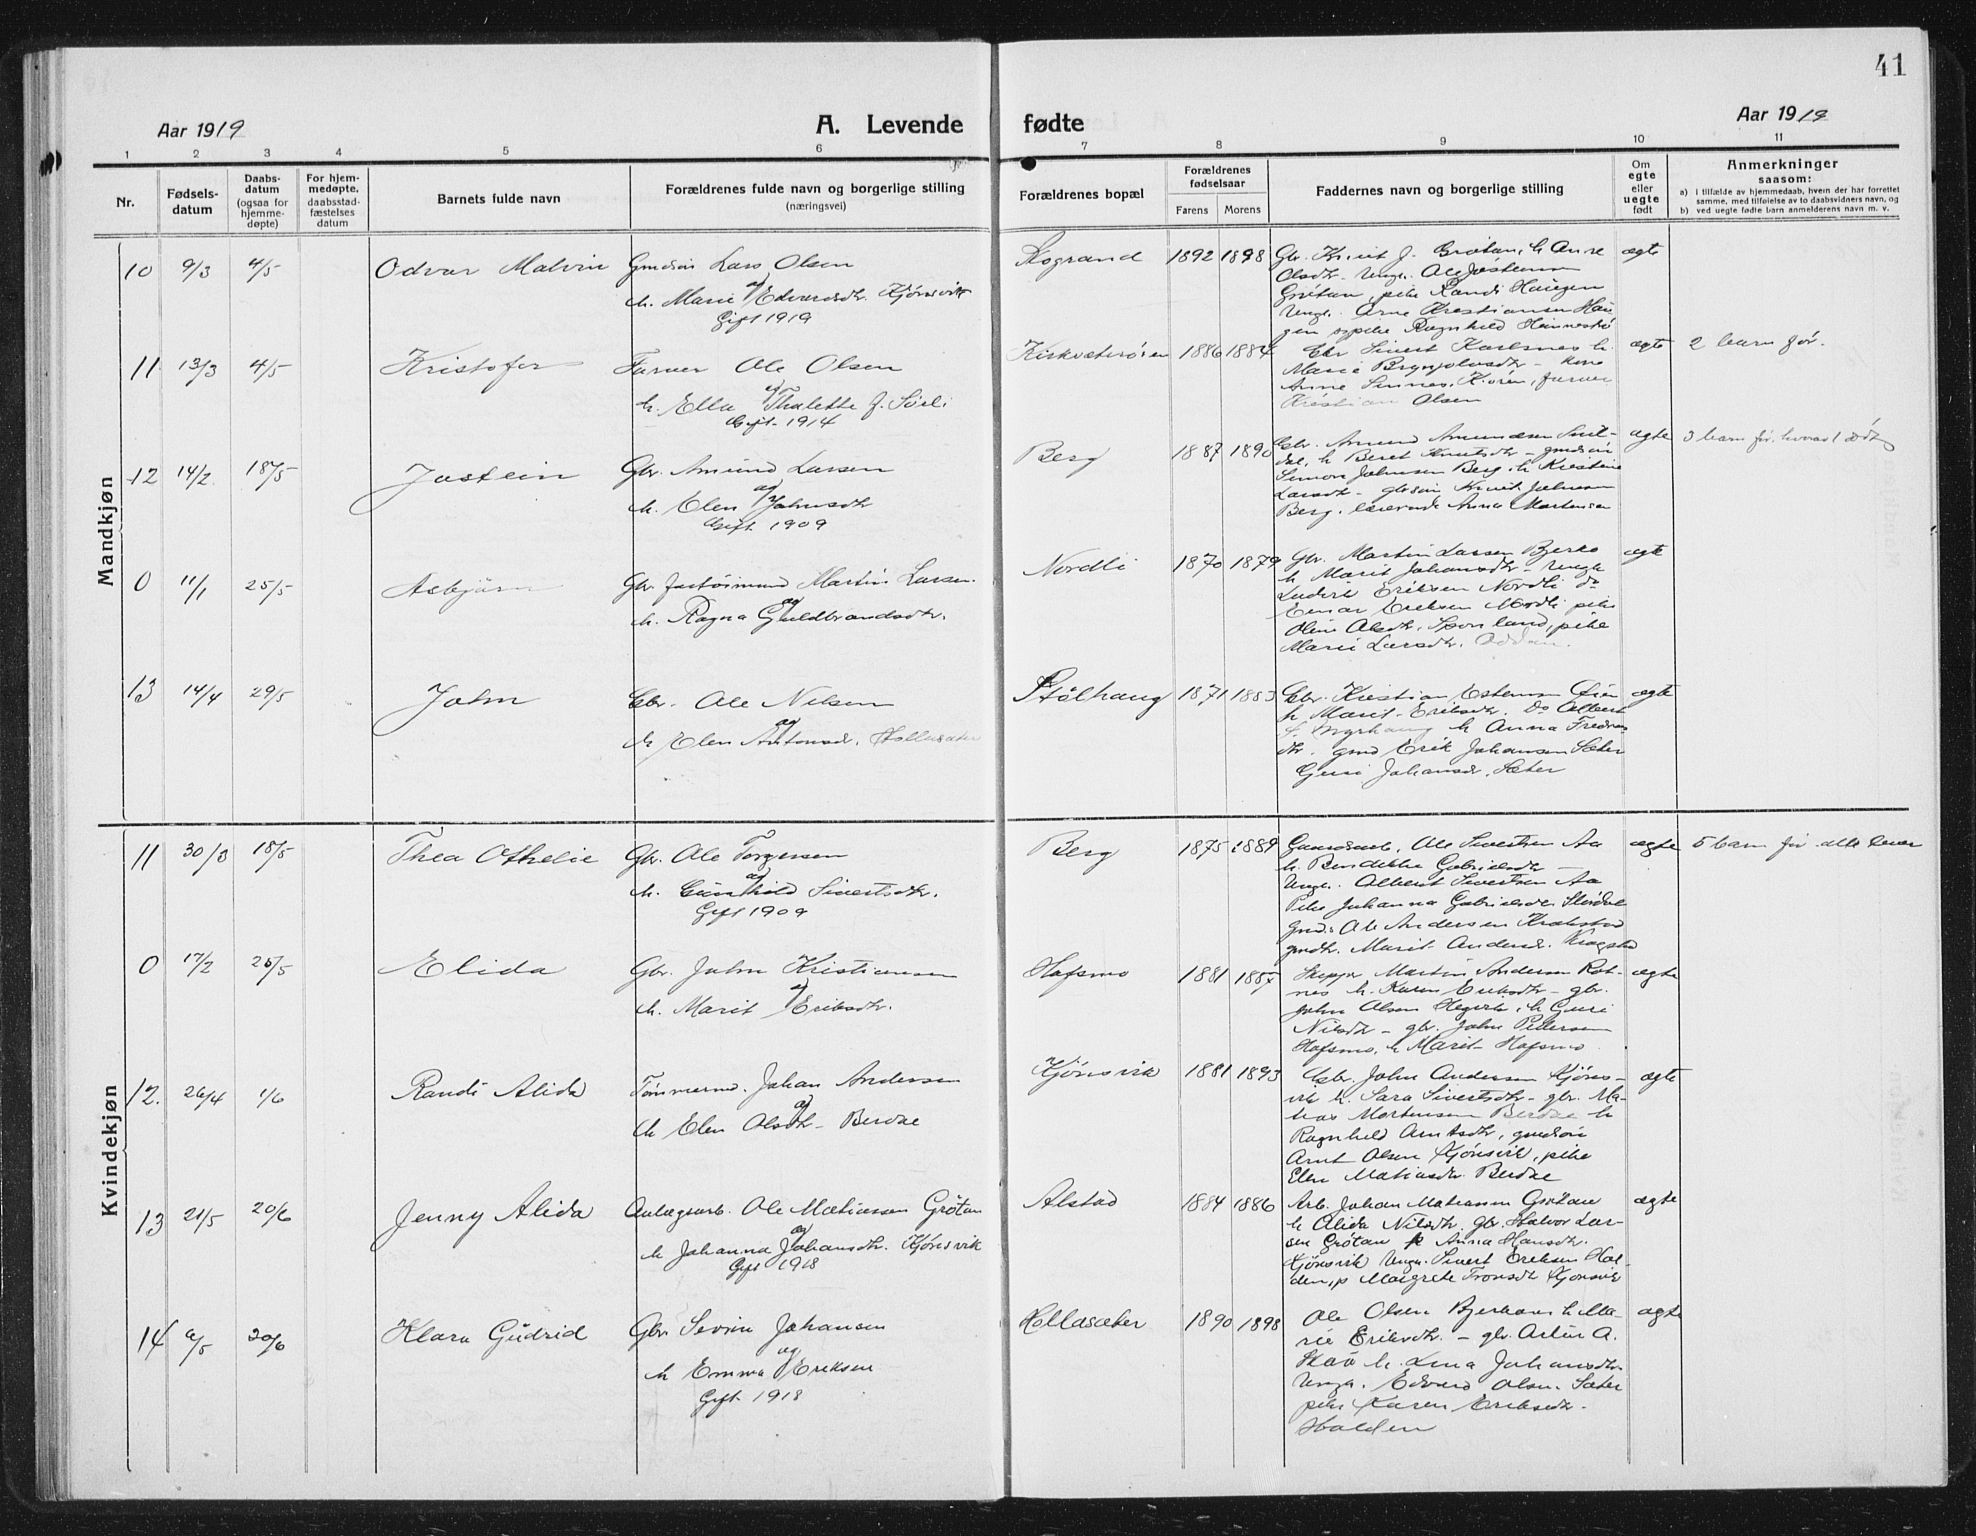 41
Aar 1919
A. Levende fødte
Aar 1919
1 2 3 4 5 6 7 8 9 10 11
Nr.
Fødsels-
datum
Daabs-
datum
(ogsaa for
hjemme-
døpte)
For hjem-
medøpte,
daabsstad-
fæstelses
datum
Barnets fulde navn
Forældrenes fulde navn og borgerlige stilling
(næringsvei)
Forældrenes bopæl
Forældrenes
fødselsaar
Farens Morens
Faddernes navn og borgerlige stilling
Om
egte
eller
uegte
født
Anmerkninger
saasom:
a) I tilfælde av hjemmedaab, hvem der har forrettet
samme, med tilføielse av to daabsvidners navn, og
b) ved uegte fødte barn anmelderens navn m. v.
Mandkjøn
10 9/3 4/5 Odvar Malvin
Gmdsøn Lars Olsen
og
h. Marie Edvardsdtr. Kjönsvik
Gift 1919
Skogrand 1892 1898
Gbr. Knut J. Grötan, h. Anne
Olsdtr. Ungk. Ole Jostensen
Grötan, pike Randi Haugen
Ungk. Arne Kristiansen Hau-
gen og pike Ragnhild
ægte
11 13/3 4/5 Kristofer
Farver Ole Olsen
og
h. Ella Thalette f. Sørli
Gift 1914
Kirksæterören 1886 1884
Gbr Sivert Karlsnes h.
Marie Brynjolvsdtr - kone
Anne Sinnes, K.ören, farver
Kristian Olsen
ægte 2 barn før.
12 14/2 18/5 Jostein
Gbr. Amund Larsen
og
h. Elen Johnsdtr
Gift 1909
Berg 1887 1890
Gbr. Amund Amundsen
h Beret Knutsdtr - gmdsön
Simon Johnsen Berg, h Kristine
Larsdtr - gbrsön Knut Johnsen
Berg, lærerinde Anna Mortensen
ægte 3 barn før, hvorav 1 död
0 11/1 25/5 Asbjörn
Gbr. Martin Larsen
og
h. Ragna Guldbrandsdtr.
Nordli 1870 1879
Gbr. Martin Larsen Bjerks
h Marit Johansdtr - Ungk
Ludvik Eriksen Nordli do
Einar Eriksen Nordli pike
Oline Olsdtr. pike
Marie Larsdtr. Oddan.
ægte
13 14/4 29/5 John
Gbr. Ole Nilsen
og
h Elen Antonsd. Hollasæter
Stölhaug 1871 1883
Gbr. Kristian Estensen
h. Marit Eriksdtr. Do Albert
h Anna Fredriks
dtr. gmd Erik Johansen Sæter
Guri Johansdr. Sæter
ægte
Kvindekjøn
11 30/3 18/5 Thea Othelie
Gbr. Ole Torgersen
og
h. Gunhild Sivertsdtr.
Gift 1909
Berg 1875 1889
Ole Sivertsen Aa
h. Bendikke Gabrielsdtr -
Ungk. Albert Sivertsen Aa
Pike Johanna Gabrielsdr.
Gmd. Ole Andersen Krokstad
gmdtr. Marit Andersd.
ægte 5 barn før alle lever
0 17/2 25/5 Elida
Gbr. John Kristiansen
og
h. Marit Eriksdtr.
Hafsmo 1881 1887
Skipper Martin Andersen Rot-
nes h. Karen Eriksdtr - gbr.
John Olsen h Guri
Nilsdtr - gbr. John Pettersen
Hafsmo, h Marit Hafsmo
ægte
12. 26/4 1/6 Randi Alida
Tömmermd. Johan Andersen
og
h Elen Olsdtr - Berdze
Kjönsvik 1881 1893
Gbr. John Andersen Kjöns-
vik h. Sara Sivertsdtr - gbr. Ma-
tias Mortensen Berdze h
Ragnhild Arntsdtr, gmdsön
Arnt Olsen Kjönsvik, pike
Elen Matiasdtr. Berdze
ægte
13 21/5 20/6 Jenny Alida
Anlægsarb. Ole Matiassen Grötan
og
h Johanna Johansdtr. Kjönsvik
Gift 1918
Alstad 1884 1886
Arb. Johan Matiassen Grötan
h Alida Nilsdtr. gbr. Halvor Lar-
sen Grötan p Anna Hansdtr.
Kjönsvik Ungk. Sivert Eriksen Hal-
den, p Margrete Tronsdtr Kjönsvik
ægte
14 6/5 20/6 Klara Gudrid
Gbr. Sevrin Johansen
og
h Emma Eriksen
Gift 1918
Hollasæter 1890 1898
Ole Olsen h Ma-
rie Eriksdtr. - gbr. Artur A.
Skaa h. Lina Johansdtr.
Ungk. Edvard Olsen. Sæter
pike Karen Eriksdtr.
Halden
ægte